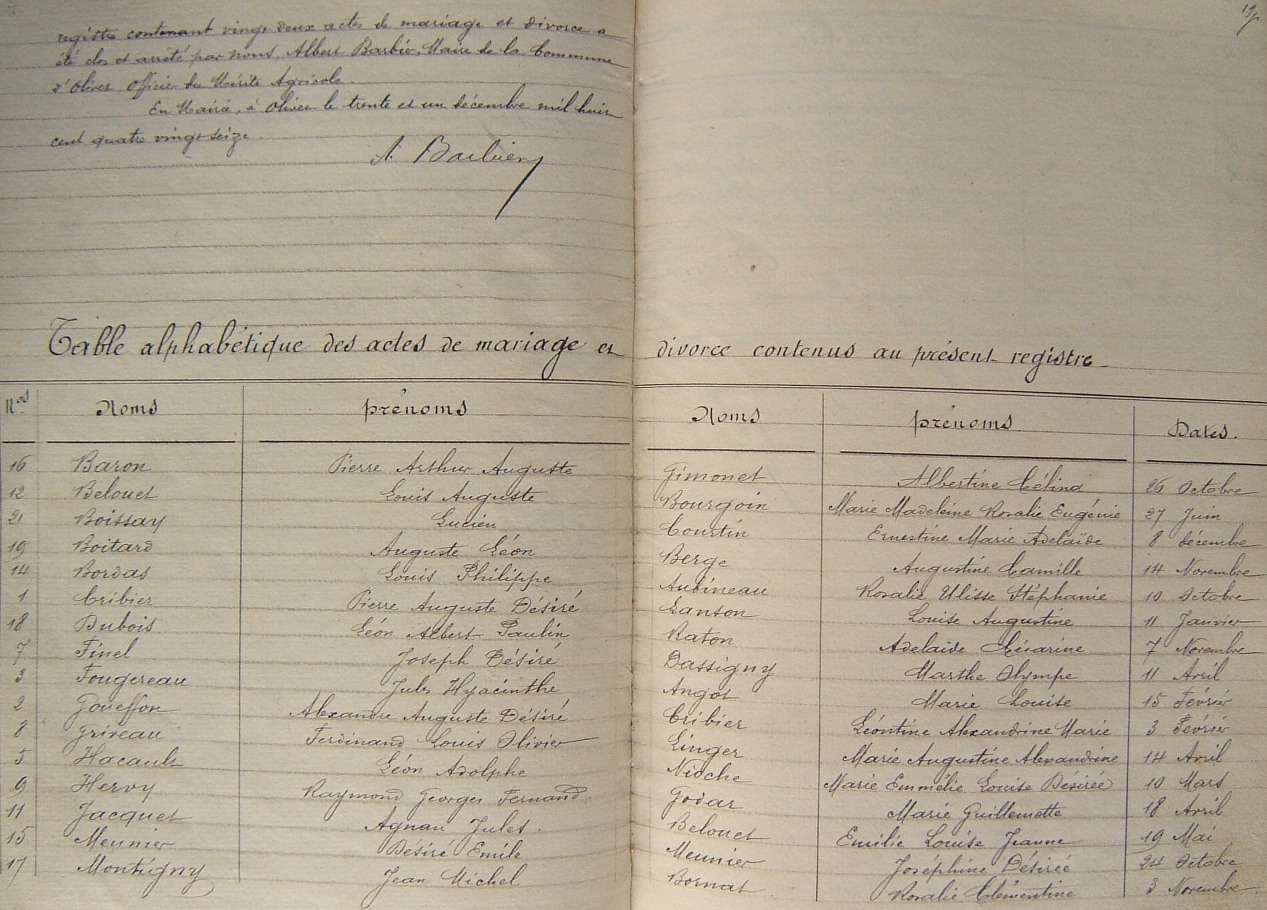 registre contenant vingt deux actes de mariage et divorce a
été clos et arrêté par nous, Albert Barbier, Maire de la Commune
d'Olivet, Officier du Mérite Agricole.
En Mairie, à Olivet le trente et un décembre mil huit
cent quatre vingt seize
A. Barbier
Table alphabétique des actes de mariage et divorce contenus au présent registre
Nos Noms prénoms Noms prénoms Dates.
16 Baron Pierre Arthur Auguste Gimonet Albertine Célina 26 Octobre
12 Belouet Louis Auguste Bourgoin Marie Madeleine Rosalie Eugénie 27 Juin
21 Boissay Lucien Courtin Ernestine Marie Adelaïde 8 décembre
19 Boitard Auguste Léon Berge Augustine Camille 14 Novembre
14 Bordas Louis Philippe Aubineau Rosalie Ulisse Stéphanie 10 Octobre
1 Cribier Pierre Auguste Désiré Lanson Louise Augustine 11 Janvier
18 Dubois Léon Albert Paulin Raton Adelaïde 7 Novembre
7 Finel Joseph Désiré Dassigny Marthe Olympe 11 Avril
3 Fougereau Jules Hyacinthe Angot Marie Louise 15 Février
2 Goueffon Alexandre Auguste Désiré Cribier Léontine Alexandrine Marie 3 Février
8 Griveau Ferdinand Louis Olivier Linger Marie Augustine Alexandrine 14 Avril
5 Hacault Léon Adolphe Nioche Marie Emmélie Louise Désirée 10 Mars
9 Hervy Raymond Georges Fernand. Godar Marie Guillemette 18 Avril
11 Jacquet Agnan Jules. Belouet Emilie Louise Jeanne 19 Mai
15 Meunier Désiré Emile Meunier Joséphine Désirée 24 Octobre
17 Montigny Jean Michel Bornat Rosalie Clémentine 3 Novembre